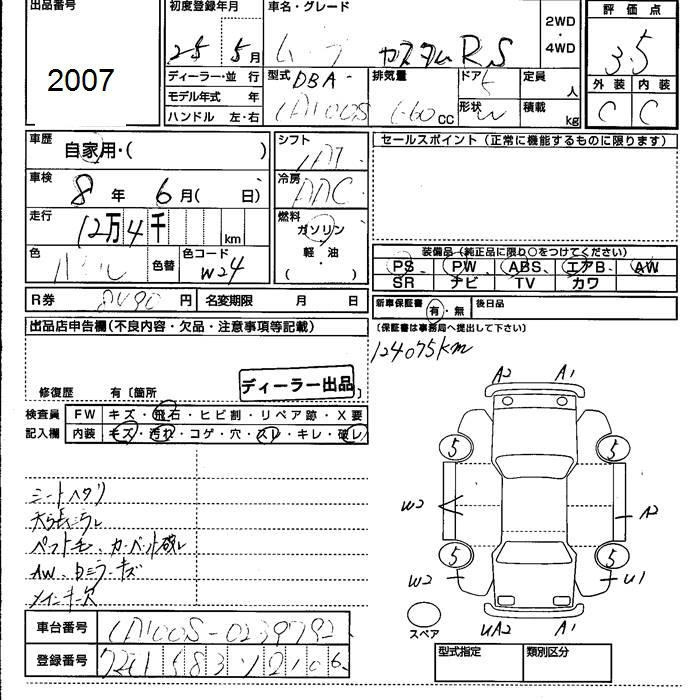 出品番号
2007
初度登録年月
25年 5月
車名・グレード
ムーブ カスタムRS
2WD
・
4WD
評価点
3.5
外装 内装
C C
ディーラー・並 行
モデル年式 年
ハンドル 左・右
型式 DBA-
LA100S
排気量
660cc
ドア 5
形状 W
定員 人
積載 kg
車歴
自家用・( )
車検
8年 6月( 日)
走行
12万4千 km
色
色替
色コード
W24
シフト
冷房
AAC
燃料
ガソリン
軽・油
( ・ )
セールスポイント (正常に機能するものに限ります)
装備品 (純正品に限り○をつけてください)
PS PW ABS エアB AW
SR ナビ TV カワ
R券 8490円
名変期限 月 日
新車保証書 有・無
後日品
(保証書は事務局へ提出して下さい)
出品店申告欄(不良内容・欠品・注意事項等記載)
124075km
修復歴 有〔箇所
ディーラー出品
検査員 FW キズ・飛石・ヒビ割・リペア跡・X要
記入欄 内装 キズ・汚れ・コゲ・穴・スレ・キレ・破レ
シートヘタリ
カーペット破レ
AW・ミラーキズ
メインキー欠
A2 A1
5 5
W2 A2
5 5
W2 U1
UA2 A1
スペア
車台番号 LA100S-0239792
登録番号
型式指定 類別区分